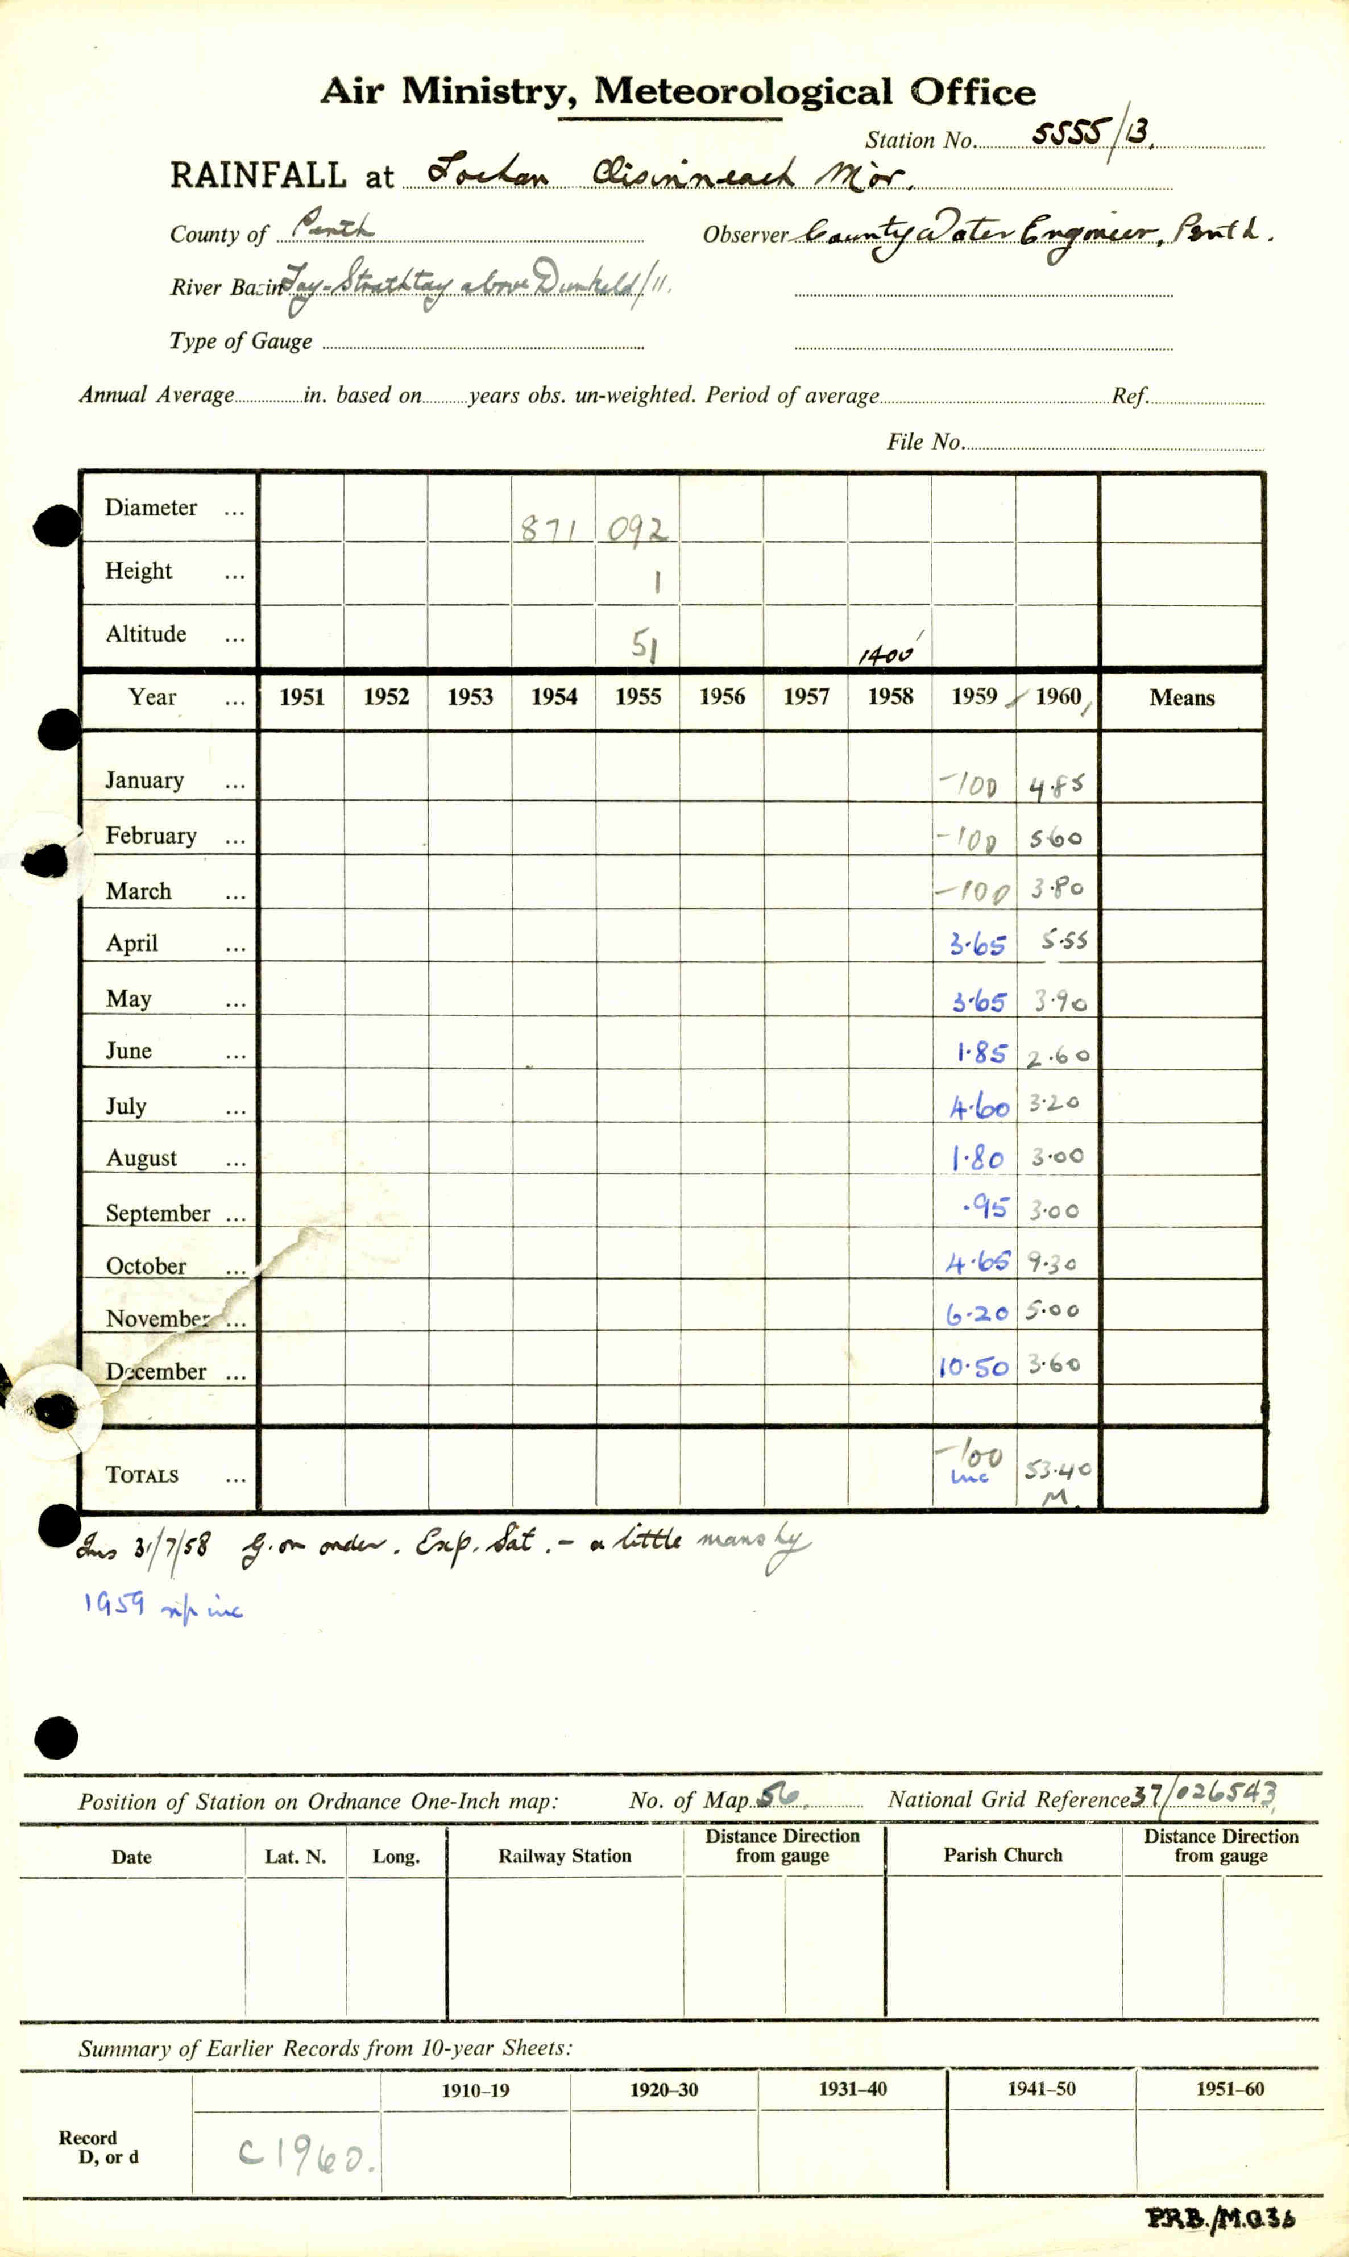 Air Ministry, Meteorological Office
Station No. 5555/13.
RAINFALL at Lochan Oisinneach Mòr.
County of Perth Observer County Water Engineer, Perth.
River Basin Tay-Strathtay above Dunkeld/11.
Type of Gauge
Annual Average in. based on years obs. un-weighted. Period of average Ref.
File No.
Diameter ... 871 092
Height ... 1
Altitude ... 51 1400'
Year ... 1951 1952 1953 1954 1955 1956 1957 1958 1959 1960 Means
January ... -100 4.85
February ... -100 5.60
March ... -100 3.80
April ... 3.65 5.55
May ... 3.65 3.90
June ... 1.85 2.60
July ... 4.60 3.20
August ... 1.80 3.00
September ... .95 3.00
October ... 4.65 9.30
November ... 6.20 5.00
December ... 10.50 3.60
TOTALS ... -100 inc 53.40
M
Ins 31/7/58 G. on order. Exp. Sat. - a little marshy
1959 inc
Position of Station on Ordnance One-Inch map: No. of Map 56 National Grid Reference 37/026543
Date Lat. N. Long. Railway Station Distance Direction from gauge Parish Church Distance Direction from gauge
Summary of Earlier Records from 10-year Sheets:
1910-19 1920-30 1931-40 1941-50 1951-60
Record
D, or d C1960.
PRB./M.O.36